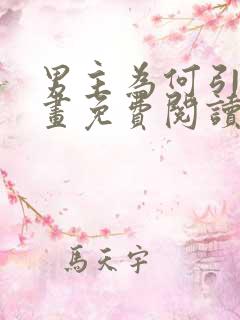 男主為何引
畫免費閱讀
馬天宇